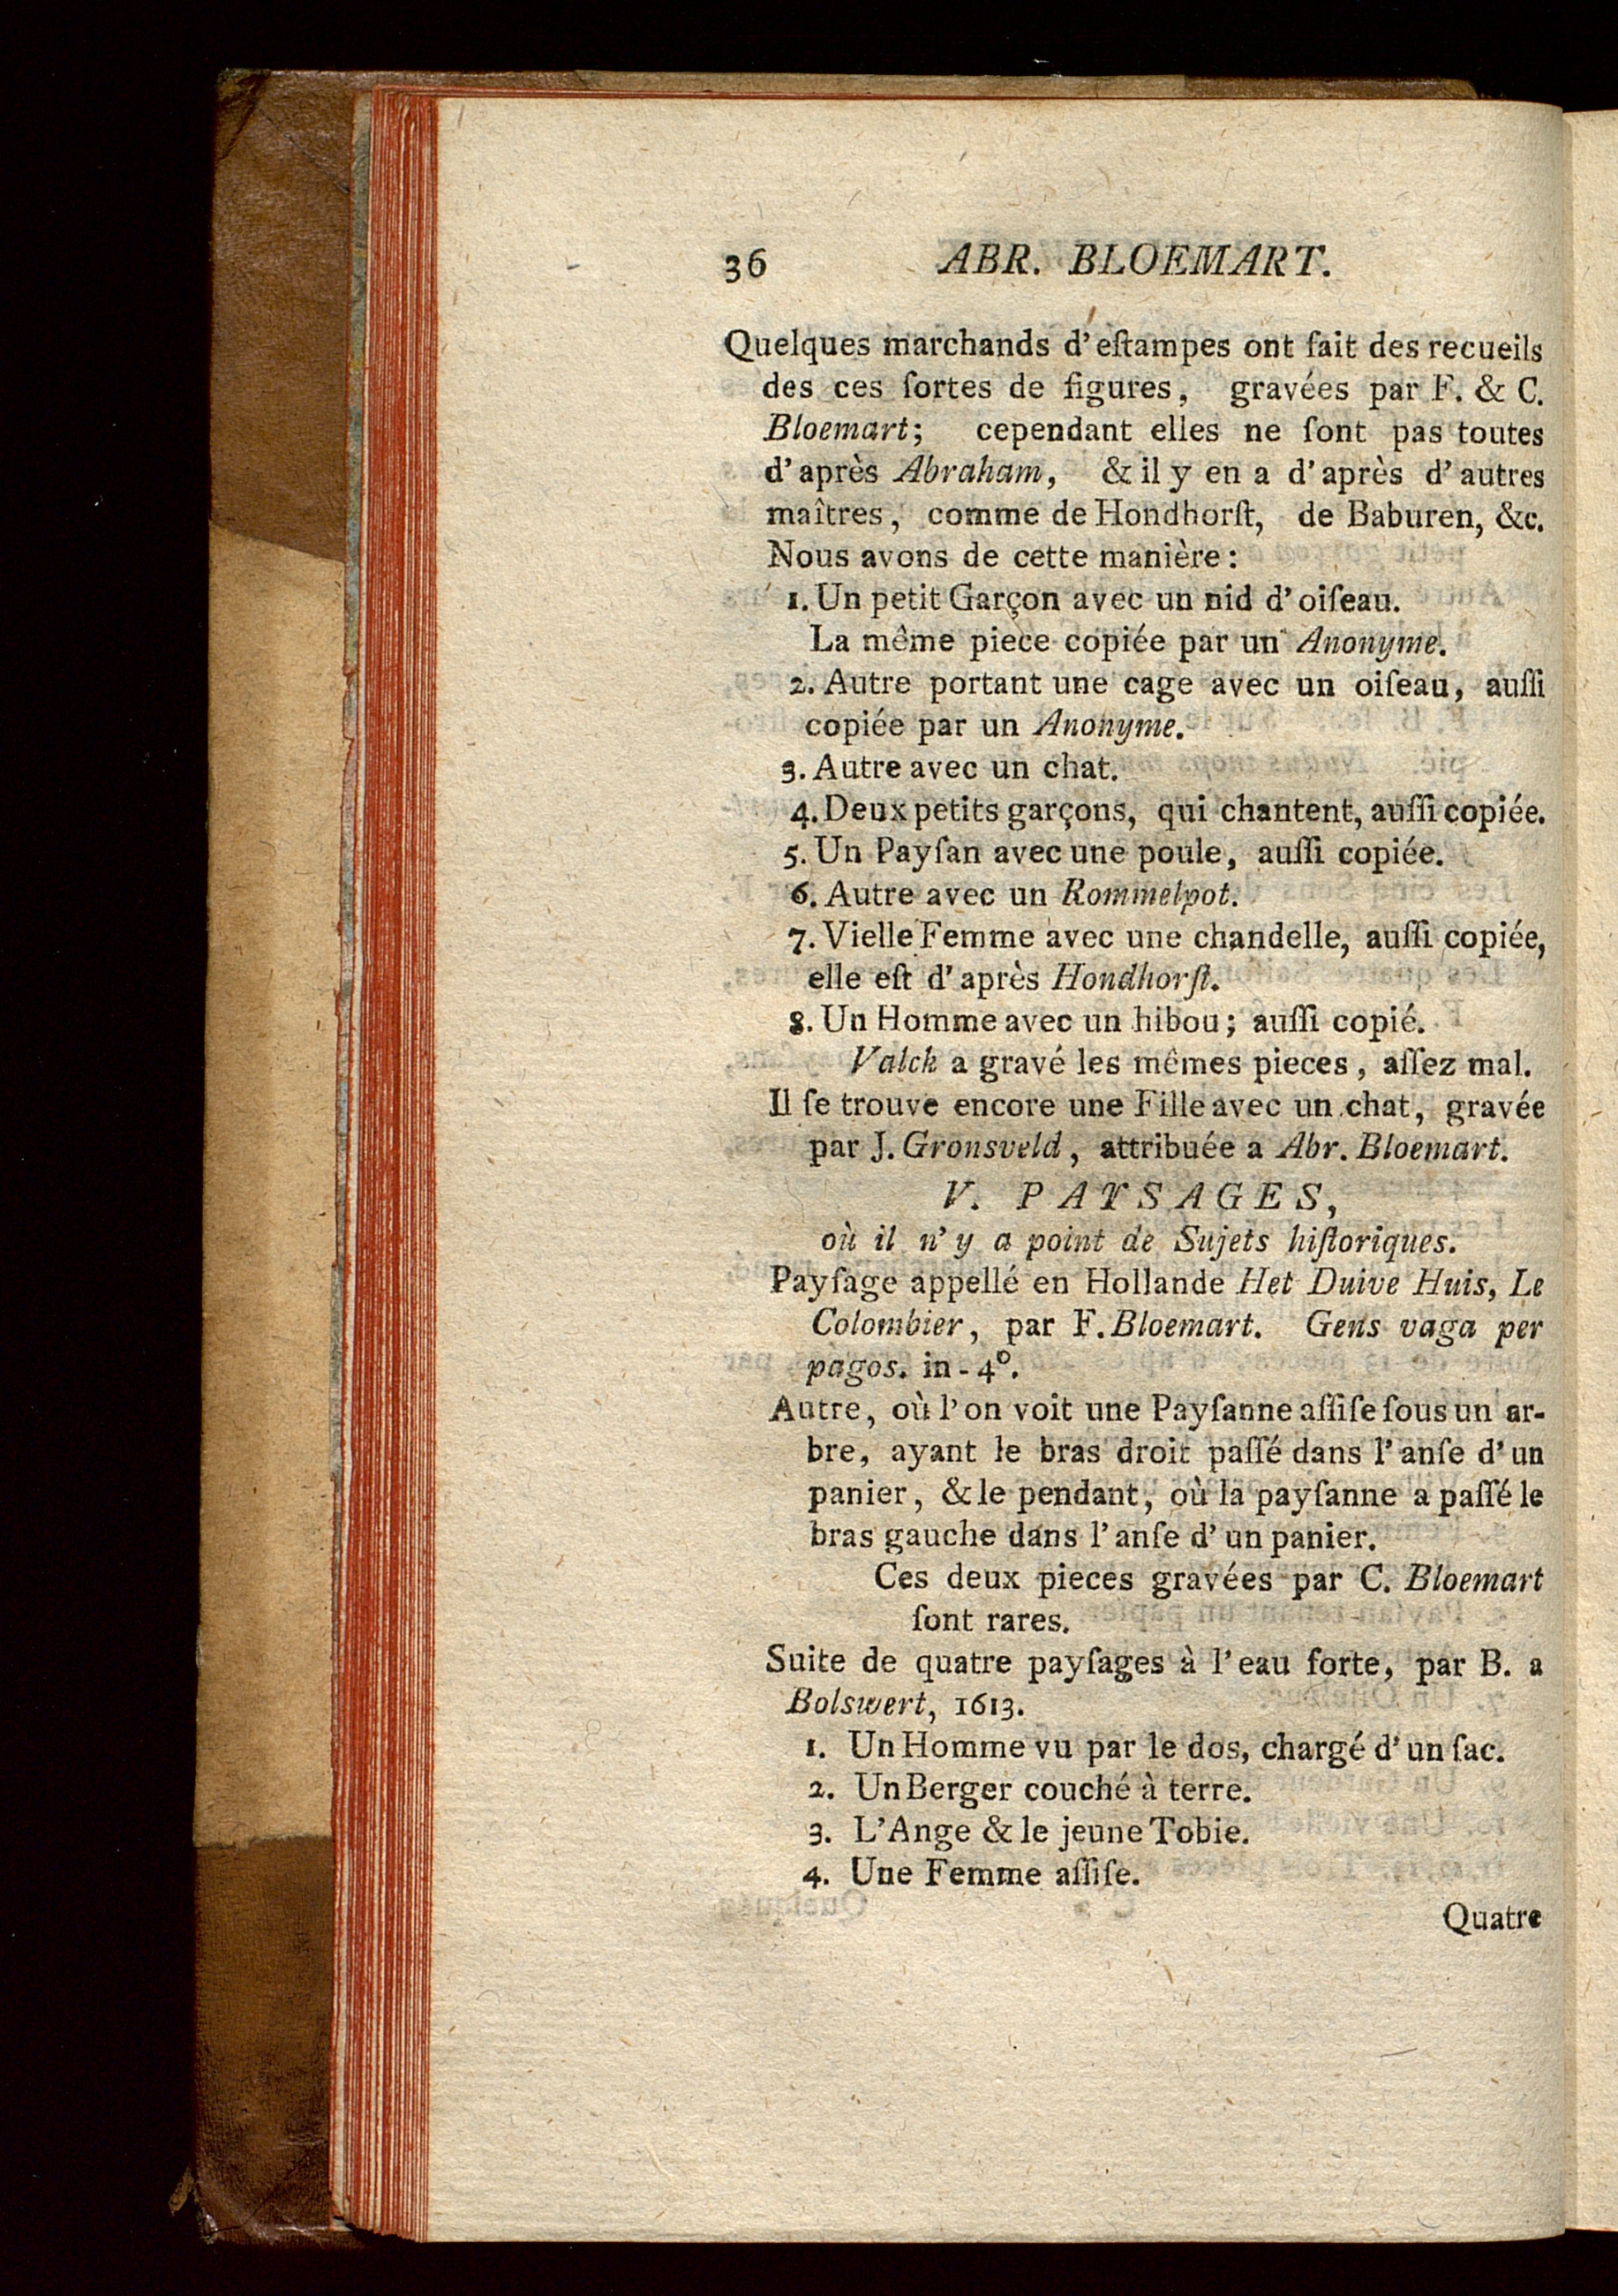 36 ABR. BLOEMART.
Quelques marchands d'eſtampes ont fait des recueils
des ces ſortes de figures, gravées par F. & C.
Bloemart; cependant elles ne ſont pas toutes
d'après Abraham, & il y en a d'après d'autres
maîtres, comme de Hondhorſt, de Baburen, &c.
Nous avons de cette manière:
1. Un petit Garçon avec un nid d'oiſeau.
La même piece copiée par un Anonyme.
2. Autre portant une cage avec un oiſeau, auſſi
copiée par un Anonyme.
3. Autre avec un chat.
4. Deux petits garçons, qui chantent, auſſi copiée.
5. Un Payſan avec une poule, auſſi copiée.
6. Autre avec un Rommelpot.
7. Vielle Femme avec une chandelle, auſſi copiée,
elle eſt d'après Hondhorſt.
8. Un Homme avec un hibou; auſſi copié.
Valck a gravé les mêmes pieces, aſſez mal.
Il ſe trouve encore une Fille avec un chat, gravée
par J. Gronsveld, attribuée a Abr. Bloemart.
V. PAYSAGES,
où il n'y a point de Sujets hiſtoriques.
Payſage appellé en Hollande Het Duive Huis, Le
Colombier, par F. Bloemart. Gens vaga per
pagos. in-4°.
Autre, où l'on voit une Payſanne aſſiſe ſous un ar-
bre, ayant le bras droit paſſé dans l'anſe d'un
panier, & le pendant, où la payſanne a paſſé le
bras gauche dans l'anſe d'un panier.
Ces deux pieces gravées par C. Bloemart
ſont rares.
Suite de quatre payſages à l'eau forte, par B. a
Bolswert, 1613.
1. Un Homme vu par le dos, chargé d'un ſac.
2. Un Berger couché à terre.
3. L'Ange & le jeune Tobie.
4. Une Femme aſſiſe.
Quatre